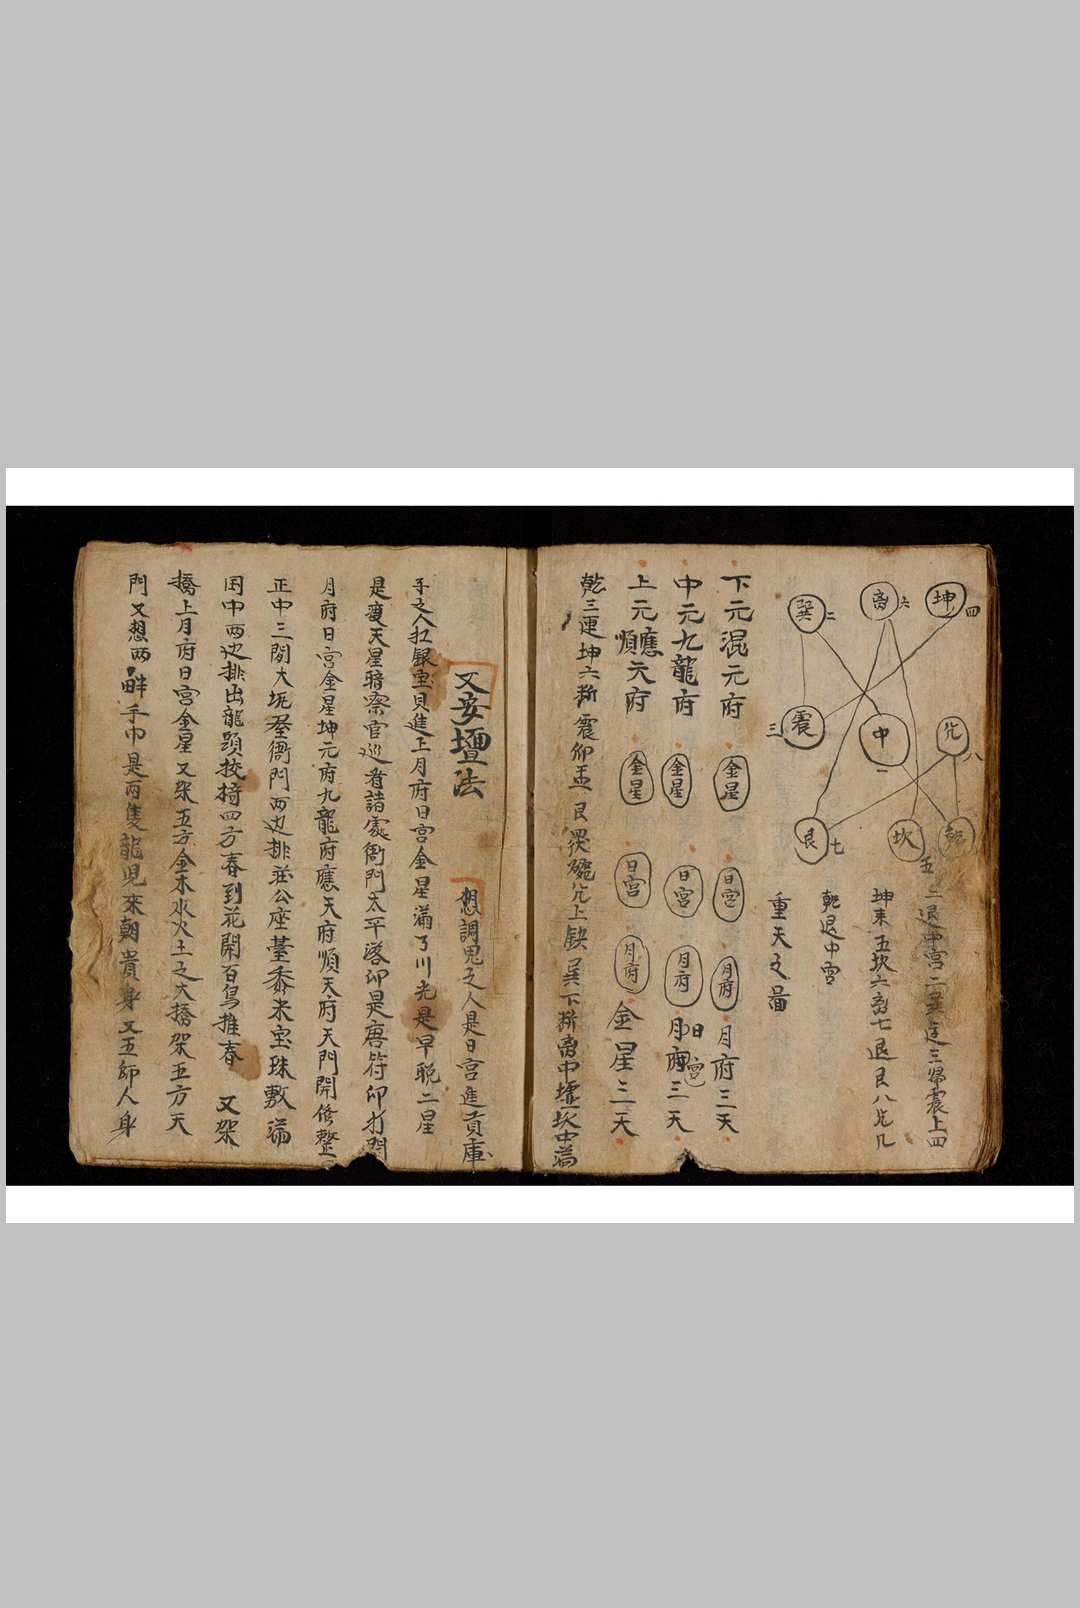 坤四
离六
巽二
兑八
中一
震三
坎五
艮七
二退中宫二巽廷三帰震上四
坤来五坎六离七退艮八兑几
乾退中宫
重天之啚
下元混元府 金星 日宫 月府 月府三天
中元九龍府 金星 日宫 月府 日宫月府三天
上元應順天府 金星 日宫 月府 金星三天
乾三連坤六断震仰盂艮覆碗兑上缺巽下断离中虚坎中满
又安壇法 想調鬼之人是日宫進貢庫
子之人扛銀宝貝進上月府日宫金星满了川光是早晚二星
是渡天星暗察官巡看諸處衙門太平落印是唐符印打開
月府日宫金星坤元府九龍府應天府順天府天門開修整
正中三間大坭壆衙門两边排莊公座臺黍米宝珠敷满
田中两边排出龍頭挍椅四方春到花開百鸟推春 又架
橋上月府日宫金星又架五方金木水火土之大橋架五方天
門又想两畔手巾是两隻龍児來朝貴身又五師人身